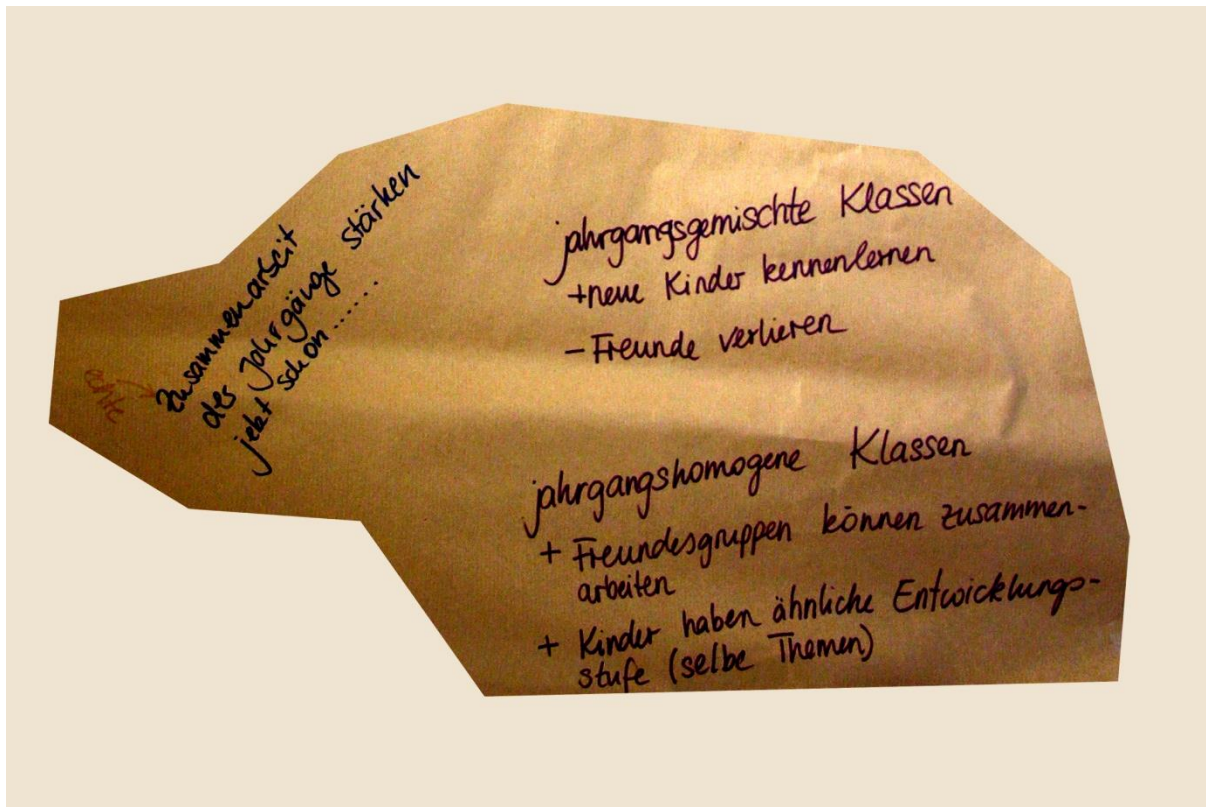 echte
Zusammenarbeit
der Jahrgänge stärken
jetzt schon......
jahrgangsgemischte Klassen
+neue Kinder kennenlernen
- Freunde verlieren
jahrgangshomogene Klassen
+ Freundesgruppen können zusammen-
arbeiten
+ Kinder haben ähnliche Entwicklungs-
stufe (selbe Themen)